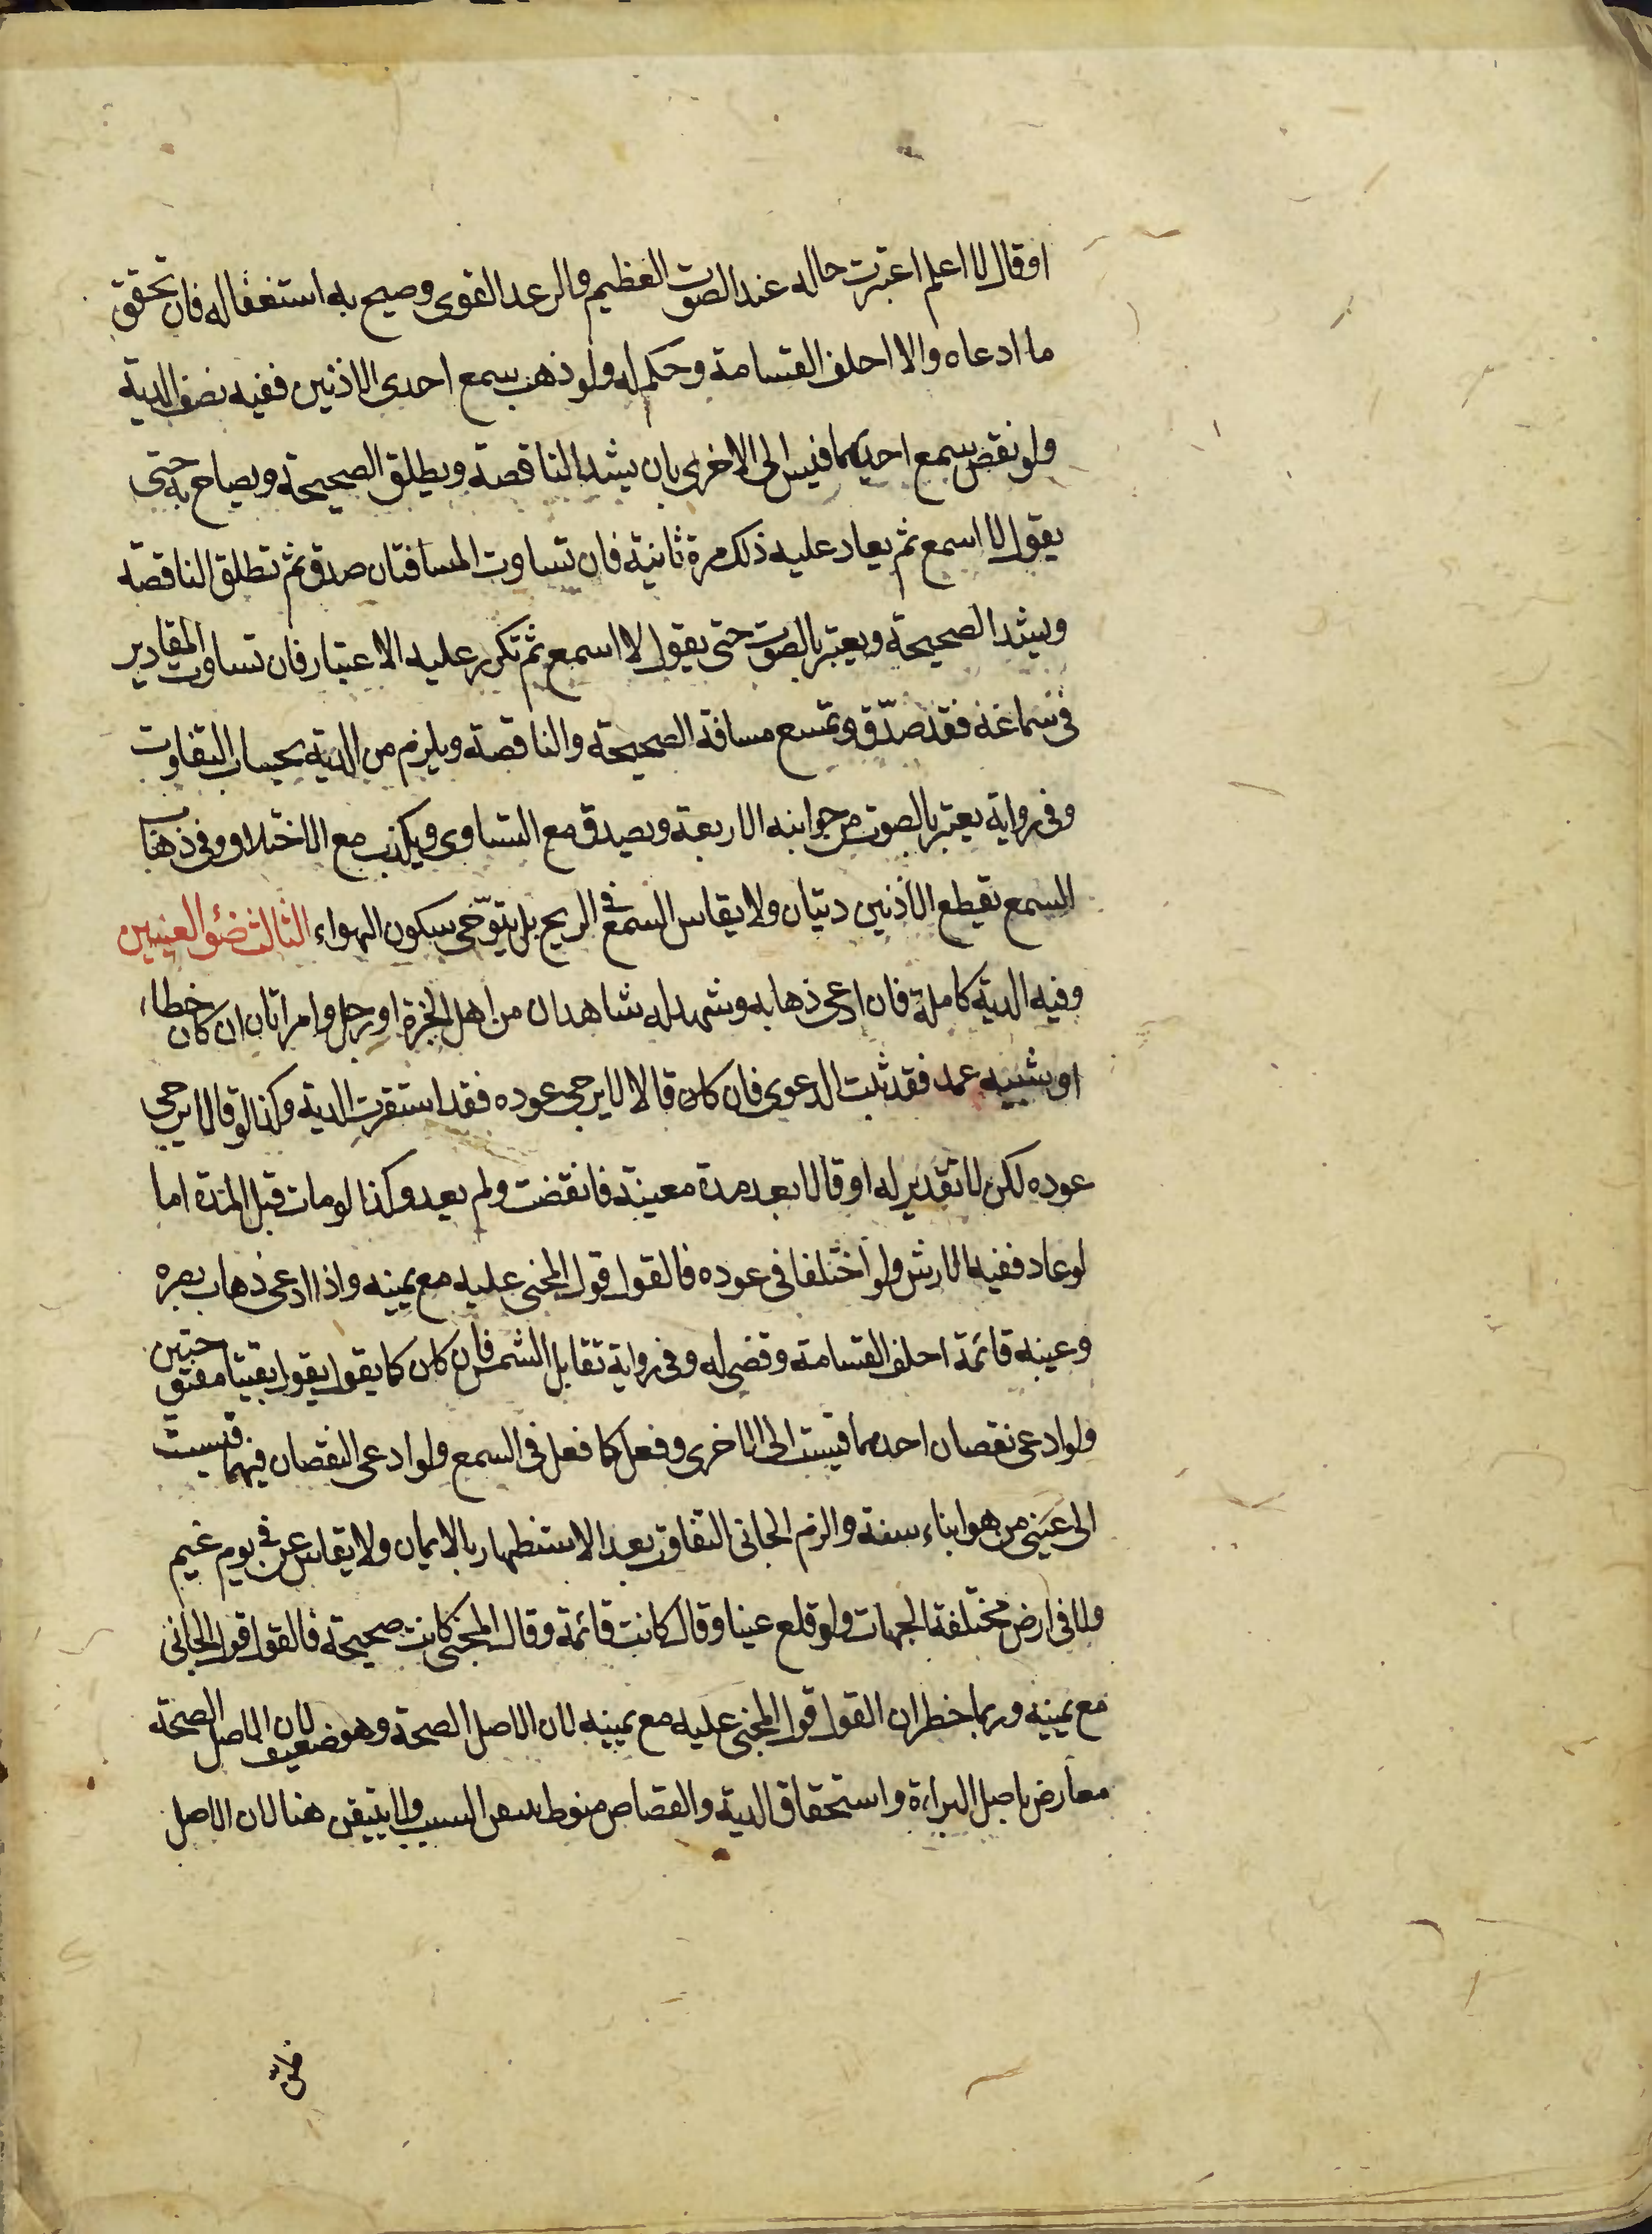 او قال لا اعلم اعتبرت حاله عند الصوت العظيم والرعد القوى وصيح به استغفاله فان تحقق
ما ادعاه والا احلف القسامة وحكم له ولو ذهب سمع احدى الاذنين ففيه نصف الدية
ولو نقص سمع احديهما قيس الى الاخرى بان يشد الناقصة ويطلق الصحيحة ويصاح به حتى
يقول لا اسمع ثم يعاد عليه ذلك مرة ثانية فان تساوت المسافتان صدق ثم تطلق الناقصة
ويشد الصحيحة ويعتبر بالصوت حتى يقول لا اسمع ثم تكرر عليه الاعتبار فان تساوت المقادير
فى سماعه فقد صدّق وتمسح مسافة الصحيحة والناقصة ويلزم من الدية بحساب التفاوت
وفى رواية يعتبر بالصوت من جوانبه الاربعة ويصدق مع التساوى ويكذب مع الاختلاف وفى ذهاب
السمع بقطع الاذنين ديتان ولا يقاس السمع فى الريح بل يتوّخى سكون الهواء الثالث ضؤ العينين
وفيه الدية كاملة فان ادعى ذهابه وشهد له شاهدان من اهل الخبرة او رجل وامراتان ان كان خطاء
او شبيه عمد فقد ثبت الدعوى فان كان قالا لا يرجى عوده فقد استقرت الدية وكذا لو قالا يرجى
عوده لكن لا تقدير له او قالا بعد مدة معينة فانقضت ولم يعد وكذا لو مات قبل المدة اما
لو عاد ففيه الارش ولو اختلفا فى عوده فالقول قول المجنى عليه مع يمينه واذا ادعى ذهاب بصره
وعينه قائمة احلف القسامة وقضى له وفى رواية تقابل الشمس فان كان كما يقول يقول بقيتا مفتوحتين
ولو ادعى نقصان احدهما قيست الى الاخرى وفعل كما فعل فى السمع ولو ادعى النقصان فيهما قيست
الى عينى من هو ابناء سنه والزم الجانى التفاوت بعد الاستظهار بالايمان ولا يقاس عين فى يوم غيم
ولا فى ارض مختلفة الجهات ولو قلع عينا وقال كانت قائمة وقال المجنى كانت صحيحة فالقول قول الجانى
مع يمينه وربما خطر ان القول قول المجنى عليه مع يمينه لان الاصل الصحة وهو ضعيف لان الاصل الصحة
معارض باصل البراءة واستحقاق الدية والقصاص منوط السبب ولا يتيقن هنا لان الاصل